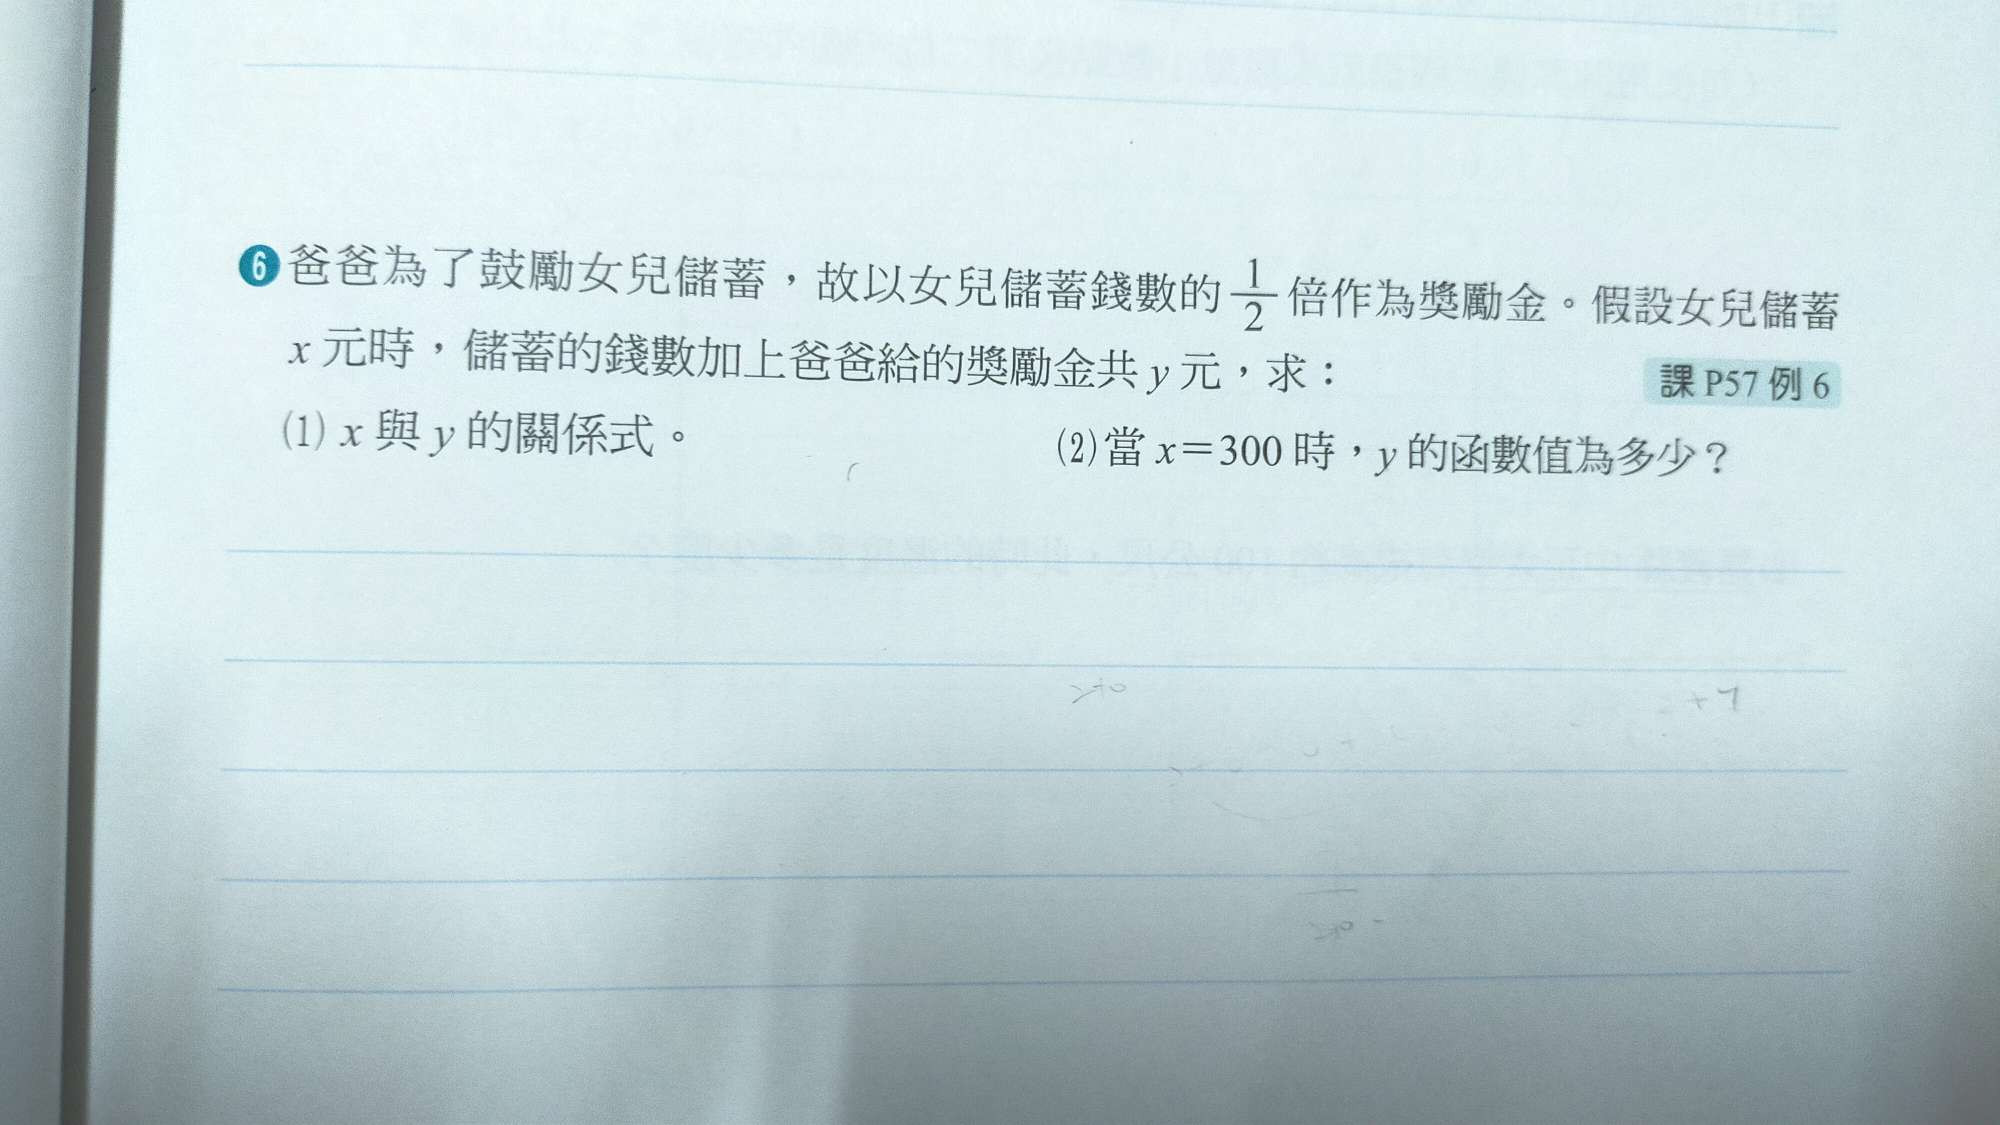 6 爸爸為了鼓勵女兒儲蓄，故以女兒儲蓄錢數的 1/2 倍作為獎勵金。假設女兒儲蓄
x 元時，儲蓄的錢數加上爸爸給的獎勵金共 y 元，求：
課 P57 例 6
(1) x 與 y 的關係式。
(2) 當 x=300 時，y 的函數值為多少？